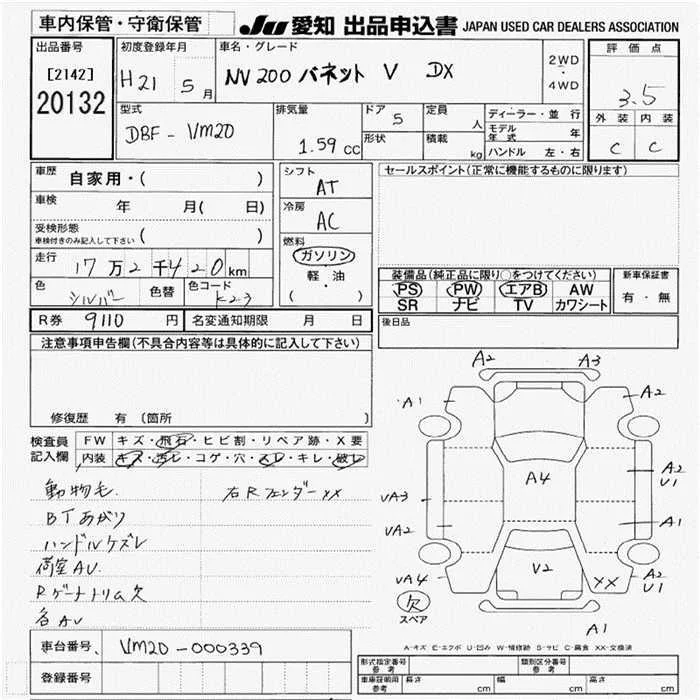 車内保管・守衛保管
JU 愛知 出品申込書 JAPAN USED CAR DEALERS ASSOCIATION
出品番号
[2142]
20132
初度登録年月
H21 5月
車名・グレード
NV200 バネット V DX
2WD
・
4WD
評価点
3.5
外装 内装
C C
型式
DBF-VM20
排気量
1.59cc
ドア
5
形状
定員
人
積載
kg
ディーラー・並行
モデル年式 年
ハンドル 左・右
車歴
自家用・( )
車検
年 月( 日)
受検形態
車検付きのみ記入して下さい ( )
走行
17万2千420km
色
シルバー
色替
色コード
K23
シフト
AT
冷房
AC
燃料
ガソリン
軽・油
( )
セールスポイント(正常に機能するものに限ります)
装備品(純正品に限り○をつけてください)
PS PW エアB AW
SR ナビ TV カワシート
新車保証書
有・無
後日品
R券 9110 円
名変通知期限 月 日
注意事項申告欄(不具合内容等は具体的に記入して下さい)
修復歴 有 (箇所 )
検査員
記入欄
FW キズ・飛石・ヒビ割・リペア跡・X要
内装 キズ・汚レ・コゲ・穴・スレ・キレ・破レ
動物毛.
BTあがり
ハンドルケズレ
荷室AU.
Rゲートトリム欠
各AU
右Rフェンダー XX
A2
A3
A1
A2
A4
UA3
A2
U1
UA2
A1
V2
UA4
XX
A2
U1
欠
スペア
A1
A・キズ E・エクボ U・凹み W・補修跡 S・サビ C・腐食 XX・交換済
車台番号
VM20-000339
登録番号
形式指定番号
参考
類別区分番号
参考
車庫証明用
参考
長さ cm
幅 cm
高さ cm